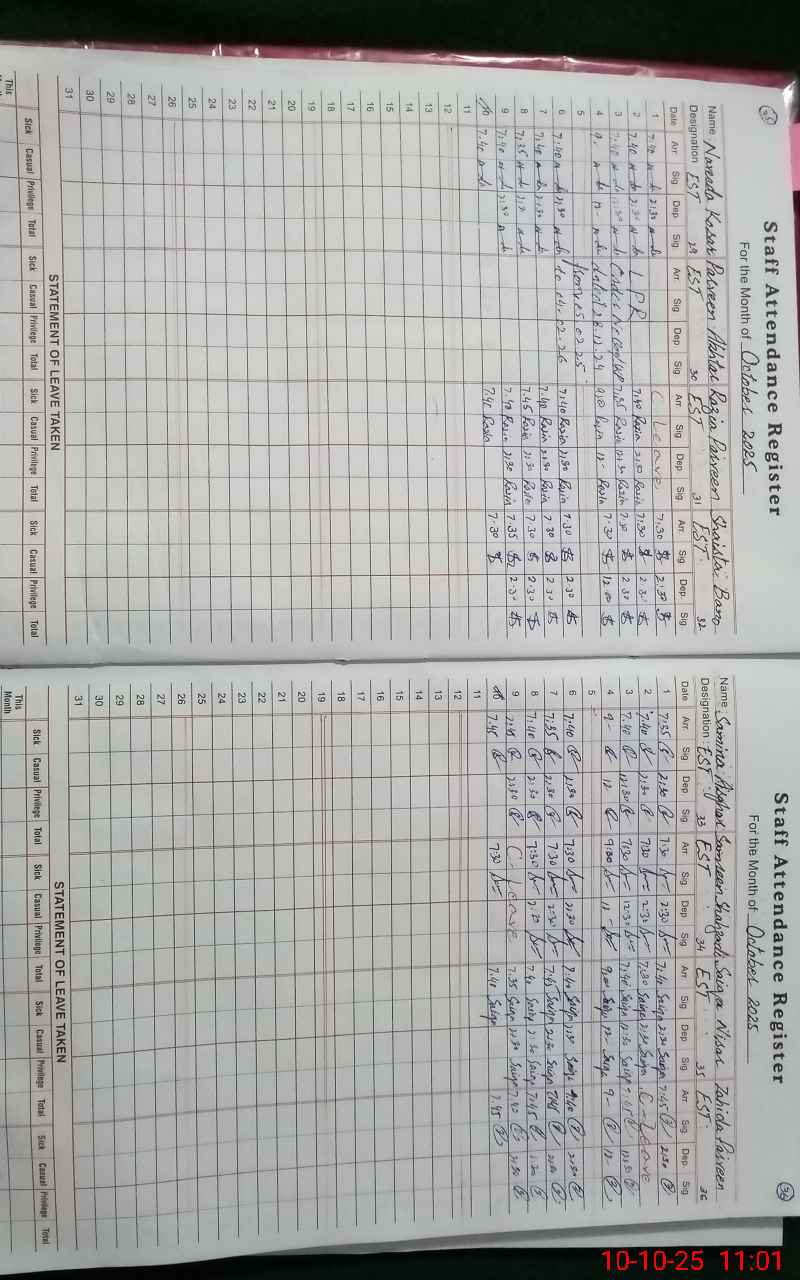 Staff Attendance Register
For the Month of October 2025
Name: Naveeda Kosar Parveen Akhtar Razia Parveen Shaista Bano
Designation EST 29 EST 30 EST 31 EST 32
Date Arr Sig Dep Sig Arr Sig Dep Sig Arr Sig Dep Sig Arr Sig Dep Sig
1 7.40 2:30 C Leave 7:30 2:30
2 7.40 2:30 LPR 7:40 Razia 2:30 Razia 7:30 2:30
3 7:40 12:30 Order No 7:35 Razia 12:30 Razia 7:30 2:30
4 9. 12- dated 28.12.24 9:00 Razia 12- Razia 7:30 12:00
5 from 5.02.25
6 7:40 2:30 to 04.02.26 7:40 Razia 2:30 Razia 7:30 2:30
7 7:40 2:30 7:40 Razia 2:30 Razia 7:30 2:30
8 7:35 2:30 7:45 Razia 2:30 Razia 7:30 2:30
9 7:40 2:30 7:40 Razia 2:30 Razia 7:35 2:30
10 7.40 7:40 Razia 7:30
11
12
13
14
15
16
17
18
19
20
21
22
23
24
25
26
27
28
29
30
31
STATEMENT OF LEAVE TAKEN
Sick Casual Privilege Total Sick Casual Privilege Total Sick Casual Privilege Total Sick Casual Privilege Total
This
Staff Attendance Register
36
For the Month of October 2025
Name: Samina Asghar Samreen Shahzadi Saiqa Nisar Zahida Parveen
Designation: EST 33 EST 34 EST 35 EST 36
Date Arr Sig Dep Sig Arr Sig Dep Sig Arr Sig Dep Sig Arr Sig Dep Sig
1 7:35 2:30 7:30 2:30 7:40 Saiqa 2:30 Saiqa 7:45 2:30
2 7:40 2:30 7:30 2:30 7:30 Saiqa 2:30 Saiqa C-Leave
3 7:40 12:30 7:30 12:30 7:40 Saiqa 12:30 Saiqa 12:30
4 9- 12- 9:00 12- 9:00 Saiqa 12- Saiqa 9- 12-
5
6 7:40 2:30 7:30 2:30 7:40 Saiqa 2:30 Saiqa 7:40 2:30
7 7:35 2:30 7:30 2:30 7:45 Saiqa 2:30 Saiqa 7:45 2:30
8 7:40 2:30 7:30 2:30 7:40 Saiqa 2:30 Saiqa 7:45 2:30
9 7:45 2:30 C-Leave 7:35 Saiqa 2:30 Saiqa 7:40 2:30
10 7.45 7:30 7:40 Saiqa 7:45
11
12
13
14
15
16
17
18
19
20
21
22
23
24
25
26
27
28
29
30
31
STATEMENT OF LEAVE TAKEN
Sick Casual Privilege Total Sick Casual Privilege Total Sick Casual Privilege Total Sick Casual Privilege Total
This
Month
10-10-25 11:01